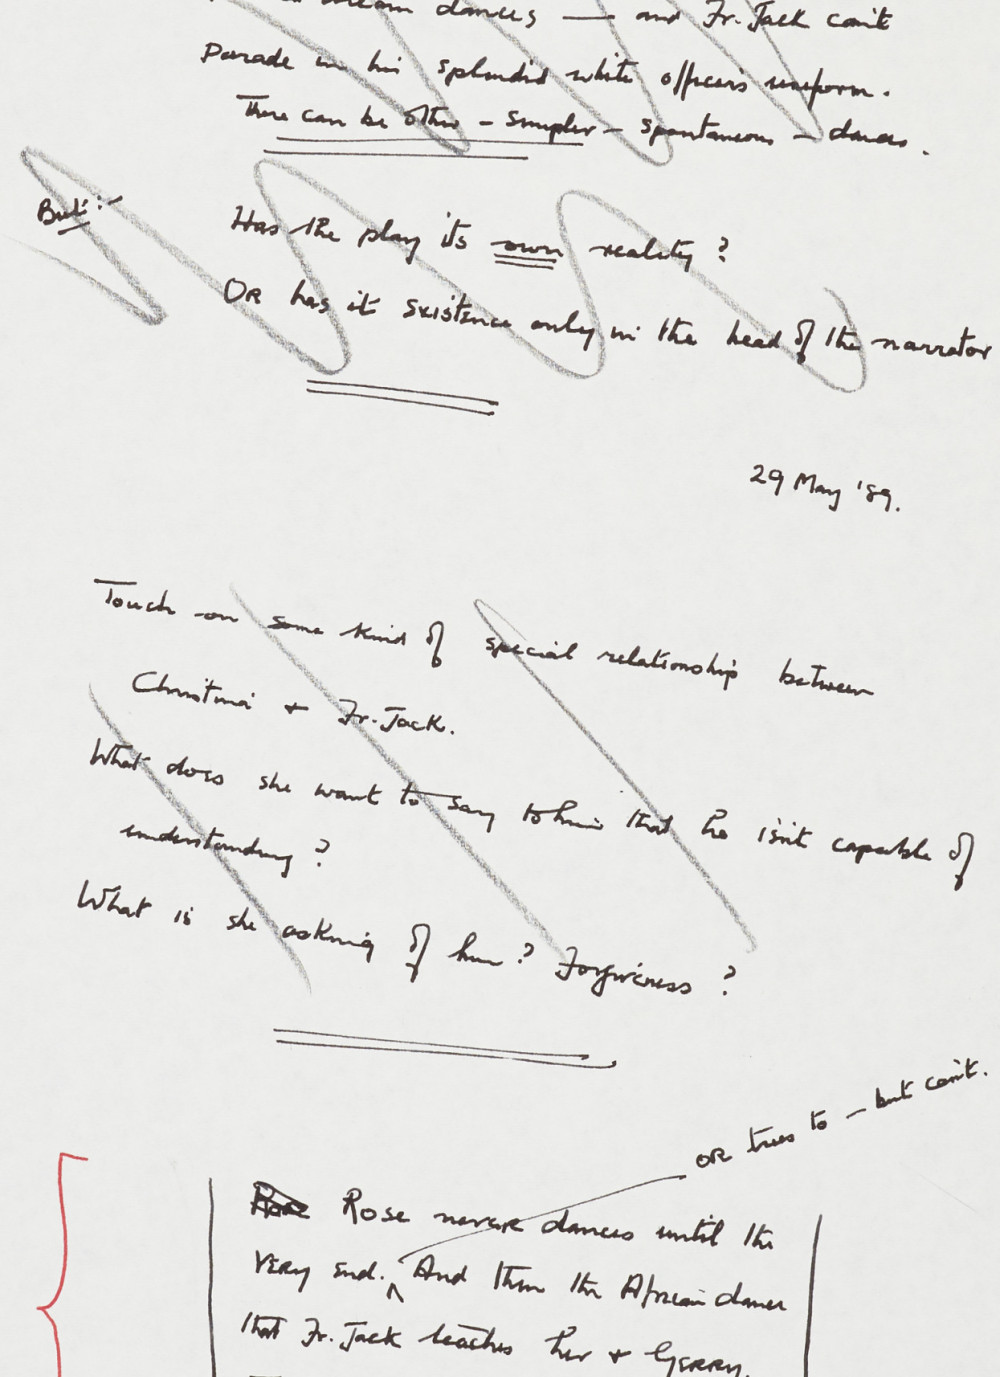 dances — and Fr. Jack can't
Parade in his splendid white officer's uniform.
There can be other – simpler – spontaneous – dances.
But:-
Has the play its own reality?
OR has it existence only in the head of the narrator
29 May '89.
Touch on some kind of special relationship between
Christina + Fr. Jack.
What does she want to say to him that he isn't capable of
understanding?
What is she asking of him? Forgiveness?
OR tries to – but can't.
Rose Rose never dances until the
VERY end. And then the African dance
that Fr. Jack teaches her + GERRY.